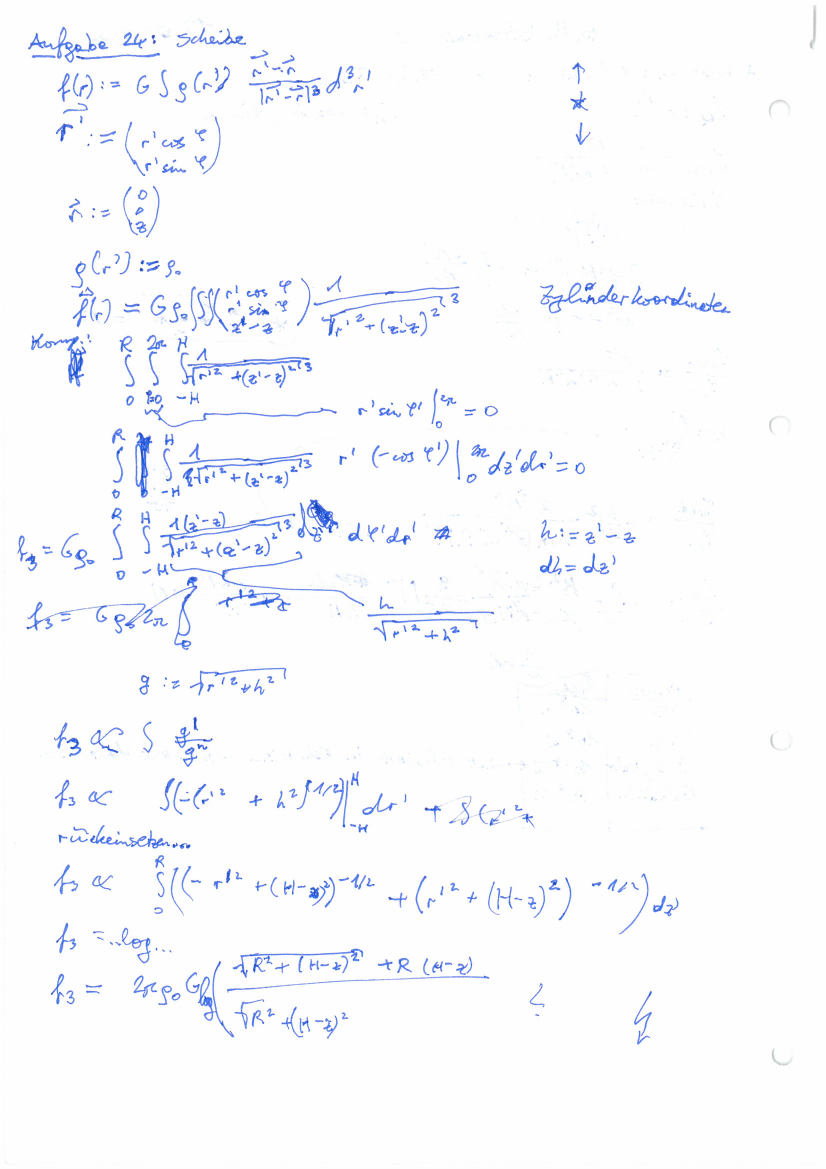 Aufgabe 24: Scheibe
f(r) := G ∫ ρ(r') (r⃗'-r⃗)/|r⃗'-r⃗|³ d³r'
r⃗' := (r' cos φ
r' sin φ)
r⃗ := (0
0
z)
ρ(r') := ρ₀
f⃗(r) = Gρ₀ ∫∫∫ (r' cos φ
r' sin φ
z'-z) 1/√(r'²+(z'-z)²)³ Zylinderkoordinaten
Komp.:
∫₀ᴿ ∫₀^2π ∫₋H^H 1/√(r'²+(z'-z)²)³
r' sin φ' |₀^2π = 0
∫₀ᴿ ∫₋H^H 1/√(r'²+(z'-z)²)³ r' (-cos φ') |₀^2π dz'dr' = 0
f₃ = Gρ₀ ∫₀ᴿ ∫₋H^H 1(z'-z)/√(r'²+(z'-z)²)³ dφ'dr' h := z'-z
dh = dz'
f₃ = Gρ₀ 2π ∫ h/√(r'²+h²)
g := √(r'²+h²)
f₃ ∝ ∫ g'/gⁿ
f₃ ∝ ∫(-(r'² + h²)^1/2)|₋H^H dr' +
rückeinsetzen...
f₃ ∝ ∫₀ᴿ ((-r'² + (H-z)²)^-1/2 + (r'² + (H-z)²)^-1/2) dz'
f₃ = ..log...
f₃ = 2πρ₀ G log( (√(R²+(H-z)²) + R (H-z)) / √R²+(H-z)²